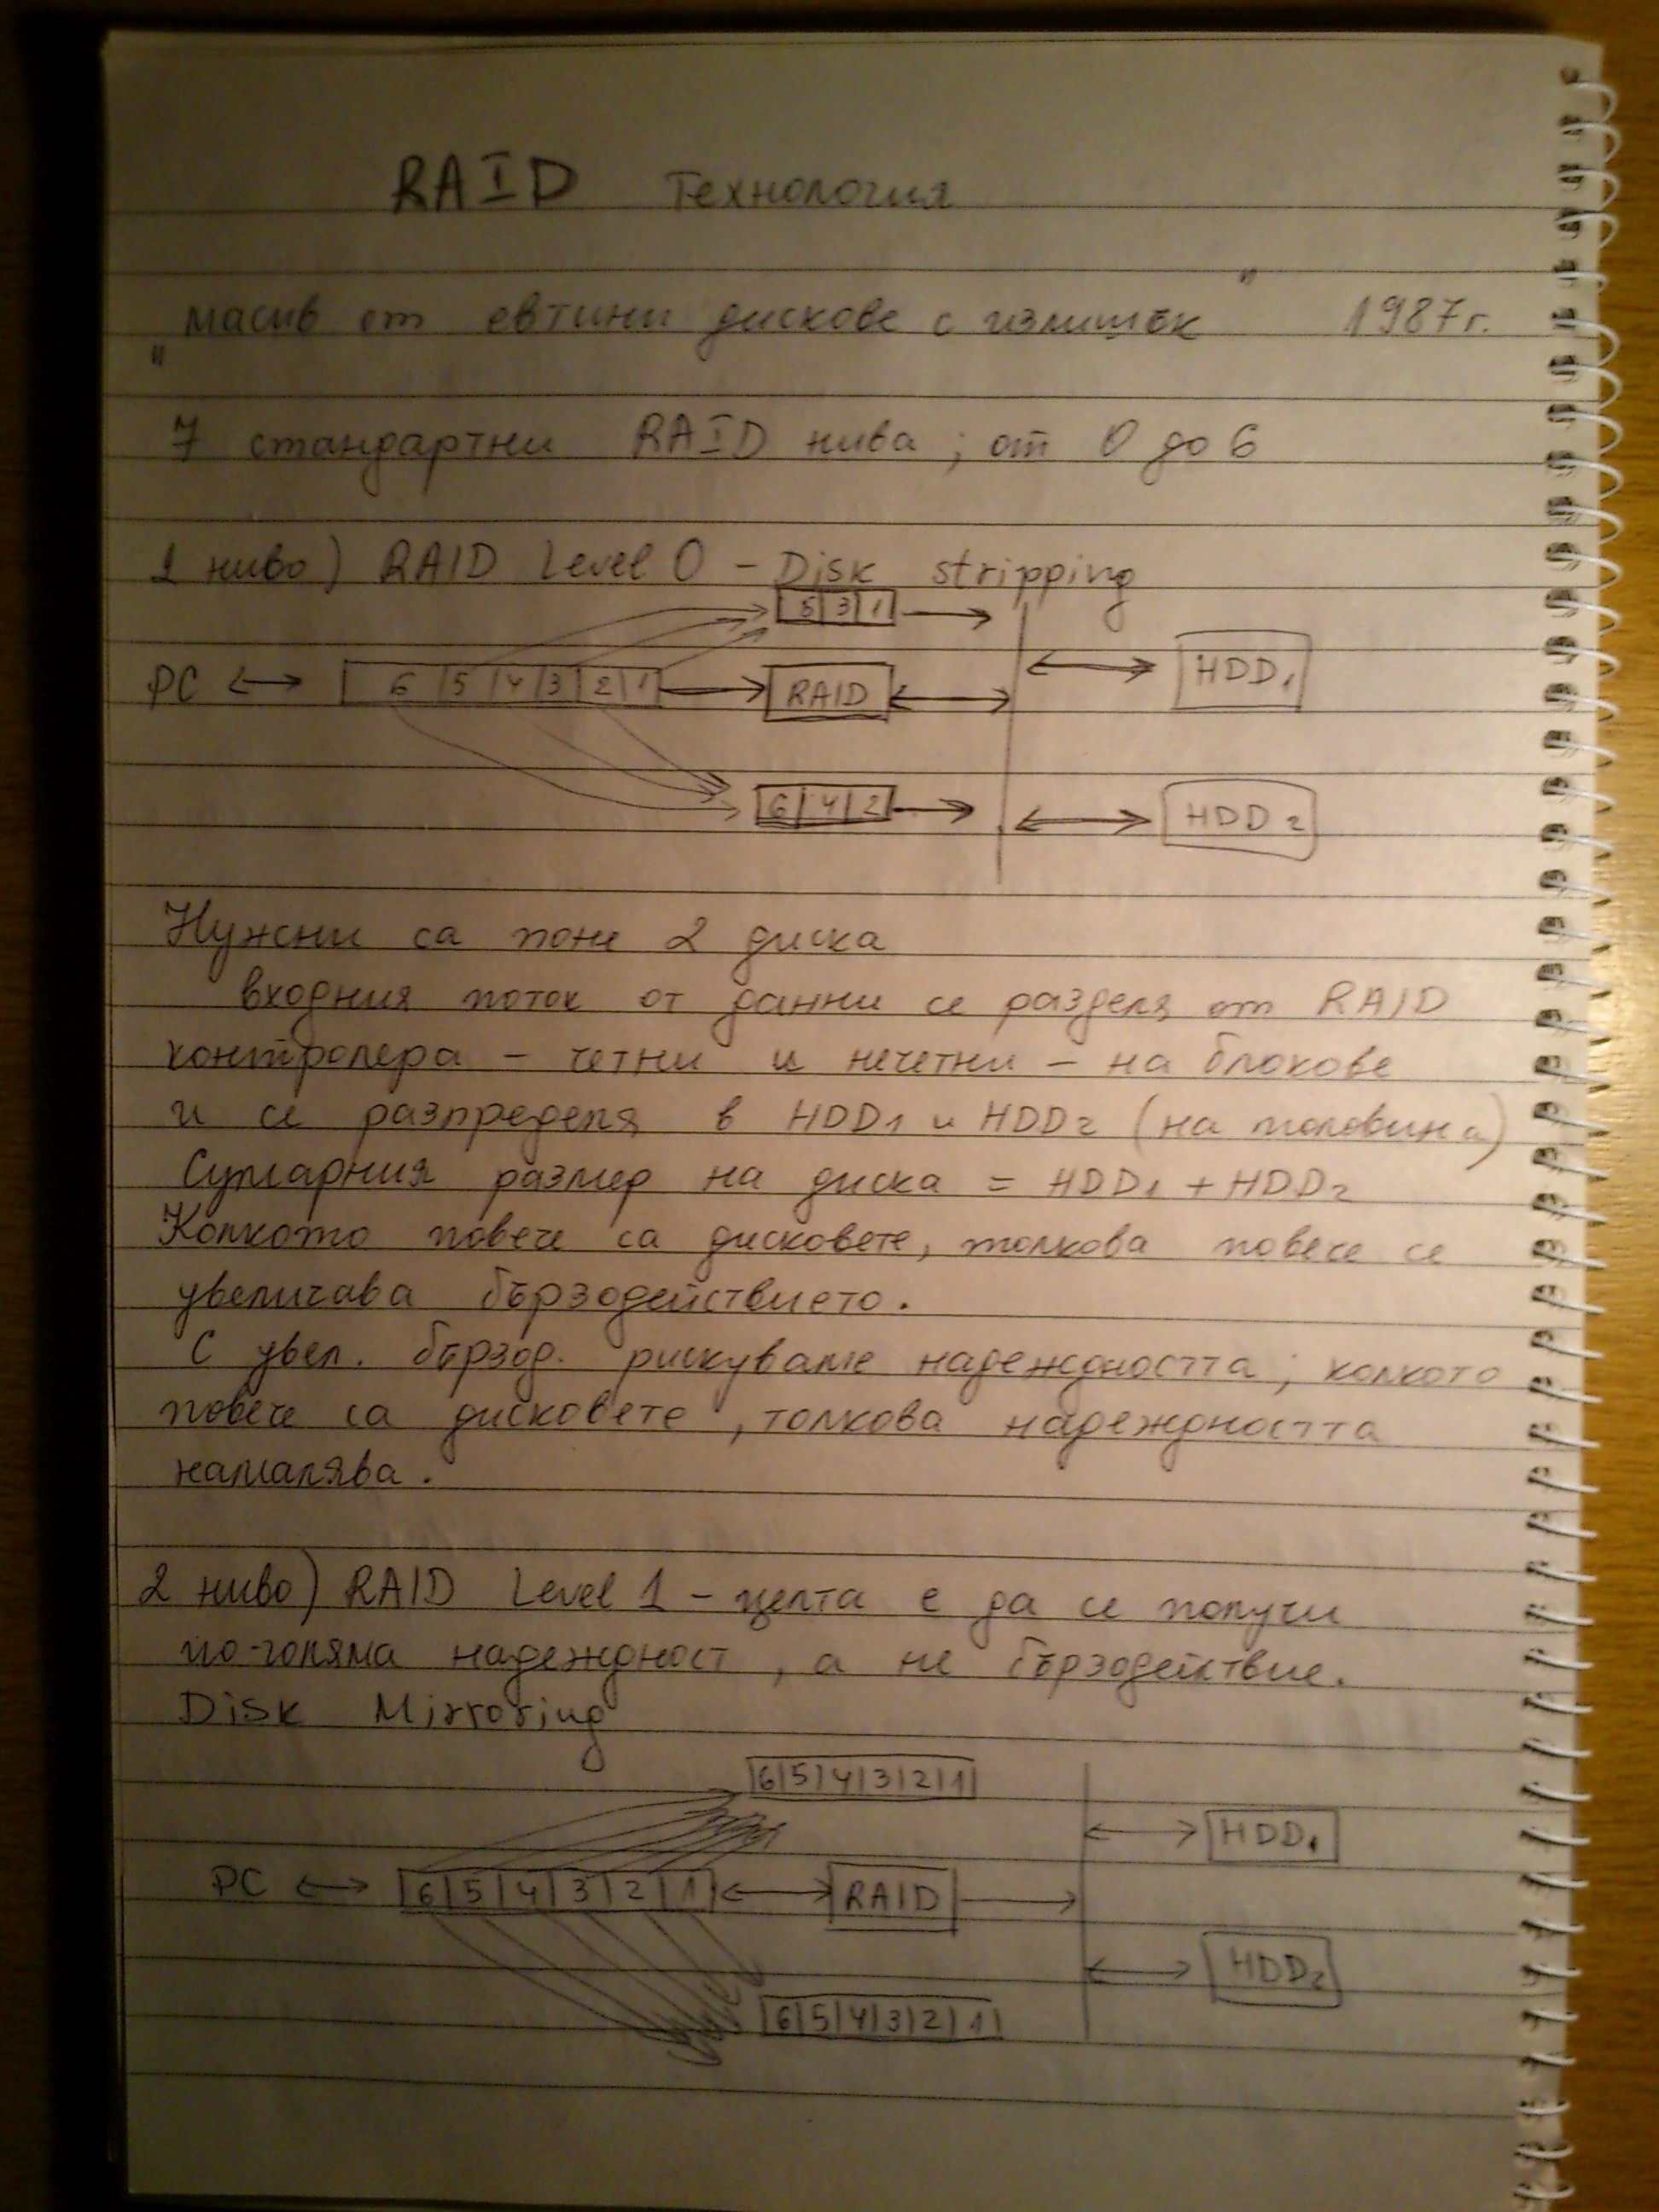 RAID Технология
"масив от евтини дискове с излишък" 1987г.
7 стандартни RAID нива; от 0 до 6
1 ниво) RAID Level 0 - Disk stripping
5 3 1
PC 6 5 4 3 2 1 RAID HDD1
6 4 2 HDD2
Нужни са поне 2 диска
входния поток от данни се разделя от RAID
контролера - четни и нечетни - на блокове
и се разпределя в HDD1 и HDD2 (на половина)
Сумарния размер на диска = HDD1 + HDD2
Колкото повече са дисковете, толкова повече се
увеличава бързодействието.
С увел. бързод. рискуваме надеждността; колкото
повече са дисковете, толкова надеждността
намалява.
2 ниво) RAID Level 1 - целта е да се получи
по-голяма надеждност, а не бързодействие.
Disk Mirroring
6 5 4 3 2 1
HDD1
PC 6 5 4 3 2 1 RAID
HDD2
6 5 4 3 2 1